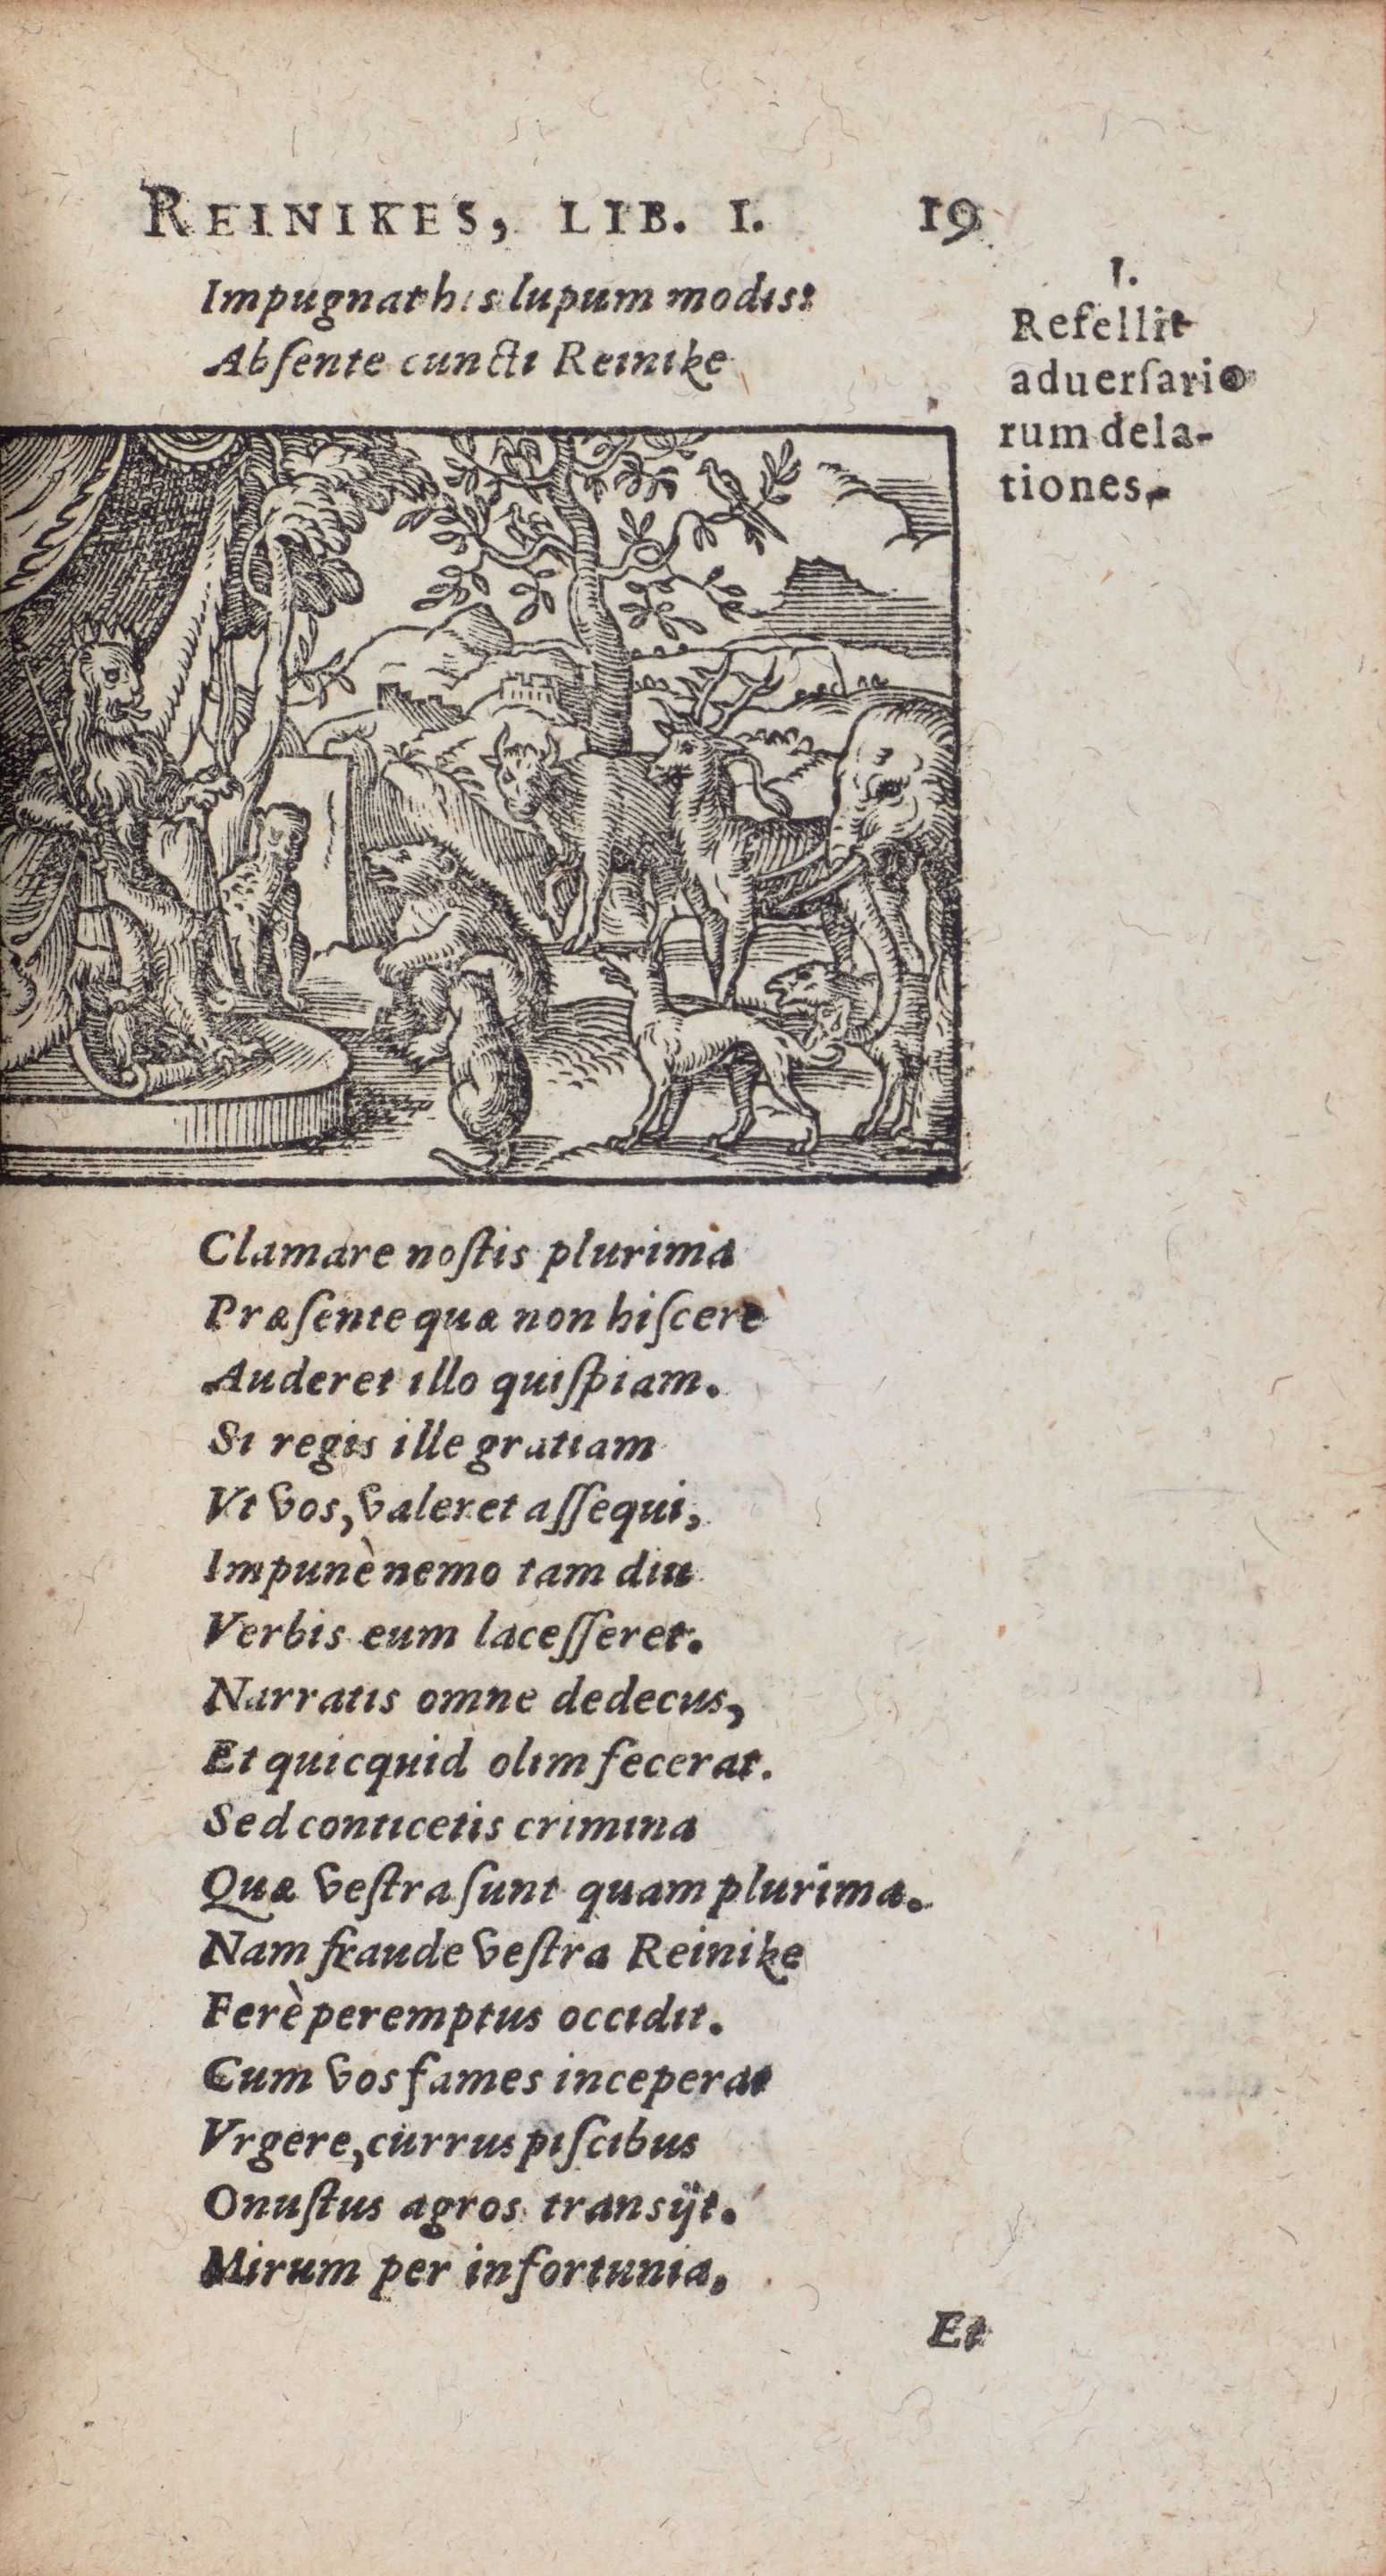 REINIKES, LIB. I. 19
Impugnat his lupum modis:
Absente cuncti Reinike
I.
Refellit
aduersario
rum dela-
tiones.
Clamare nostis plurima
Præsente quæ non hiscere
Auderet illo quispiam.
Si regis ille gratiam
Vt vos, valeret assequi,
Impunè nemo tam diu
Verbis eum lacesseret.
Narratis omne dedecus,
Et quicquid olim fecerat.
Sed conticetis crimina
Quæ vestra sunt quam plurima.
Nam fraude vestra Reinike
Ferè peremptus occidit.
Cum vos fames inceperat
Vrgere, currus piscibus
Onustus agros transijt.
Mirum per infortunia,
Et